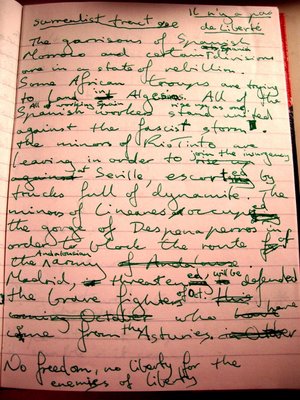 Il n'y a pas
surrealist front de Liberté
The garrisons of Spanish
Morocco and certain divisions
are in a state of rebillion.
Some African troups are trying
to Algeria. All of the
All of working Spain
Spanish workers stand united
against the fascist storm.
the minors of Rio Tinto are
leaving in order to join the insurgency
against at Seville, escorted by
trucks full of dynamite. The
minors of Lineares occupied
the gorge of Despenaperros in
order to block the route of
Andalousian
the Army of Andalousie
Madrid, threatened, will be defended
the brave fighters of Oct.
coming October who have
come from the Asturies, in October
No freedom, no liberty for the
enemies of liberty